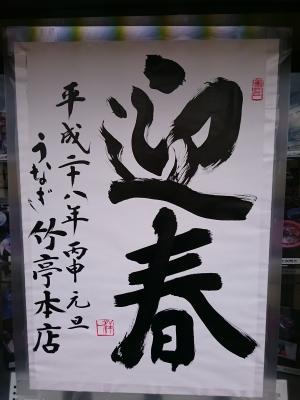 迎春
平成二十八年丙申元旦
うなぎ竹亭本店